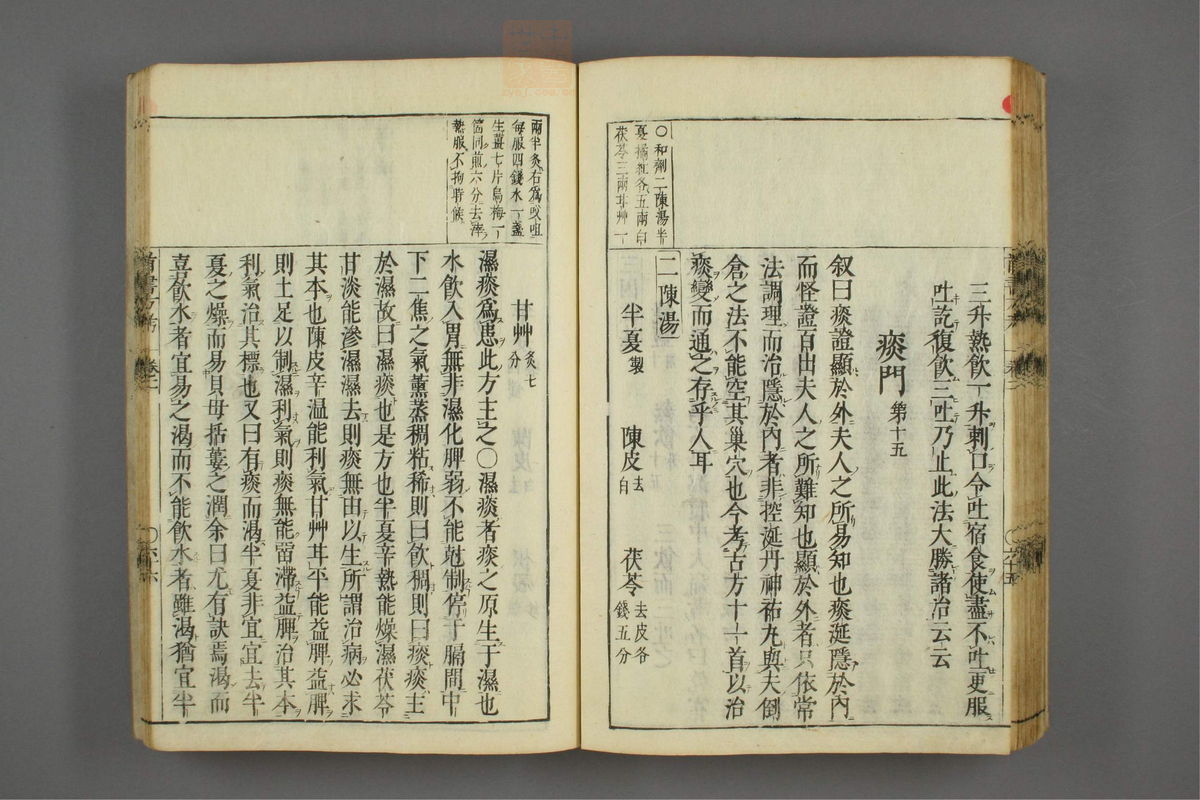 三升熱飲一升刺口令吐宿食使盡不吐更服
吐訖復飲三吐乃止此法大勝諸治云云
痰門第十五
叙曰痰證顯於外夫人之所易知也痰涎隱於內
而怪證百出夫人之所難知也顯於外者只依常
法調理而治隱於內者非控涎丹神祐丸與夫倒
倉之法不能空其巢穴也今考古方十一首以治
痰變而通之存乎人耳
〇和劑二陳湯半
夏橘紅各五兩白
茯苓三兩甘艸一
二陳湯
半夏製 陳皮去白 茯苓去皮各錢五分
兩半炙右爲㕮咀
每服四錢水一盞
生薑七片烏梅一
箇同煎六分去滓
熱服不拘時候
甘艸炙七分
濕痰爲患此方主之〇濕痰者痰之原生于濕也
水飲入胃無非濕化脾弱不能尅制停于膈間中
下二焦之氣薰蒸稠粘稀則曰飲稠則曰痰痰主
於濕故曰濕痰也是方也半夏辛熱能燥濕茯苓
甘淡能滲濕濕去則痰無由以生所謂治病必求
其本也陳皮辛溫能利氣甘艸甘平能益脾益脾
則土足以制濕利氣則痰無能留滯益脾治其本
利氣治其標也又曰有痰而渴半夏非宜宜去半
夏之燥而易貝母括蔞之潤余曰尤有訣焉渴而
喜飲水者宜易之渴而不能飲水者雖渴猶宜半
卷二
〇六十五
〇六十六